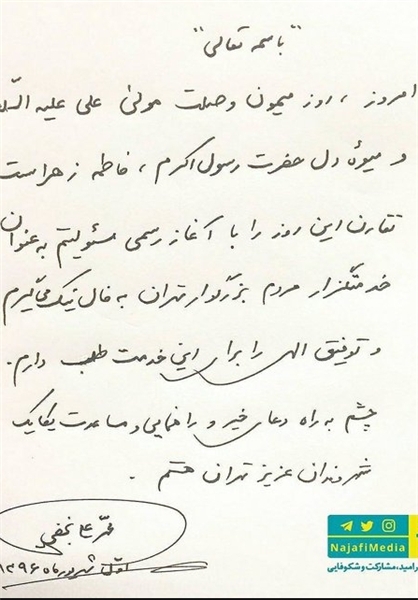 "باسمه تعالی"
امروز، روز میمون وصلت مولی علی علیه السلا
و میوهٔ دل حضرت رسول اکرم، فاطمه زهراست
تقارن این روز را با آغاز رسمی مسئولیتم به عنوان
خدمتگزار مردم بزرگوار تهران به فال نیک می‌گیرم
و توفیق الهی را برای این خدمت طلب دارم.
چشم به راه دعای خیر و راهنمایی و مساعدت یکایک
شهروندان عزیز تهران هستم.
محمد علی نجفی
اول شهریور ماه ۱۳۹۶
NajafiMedia
امید، مشارکت و شکوفایی